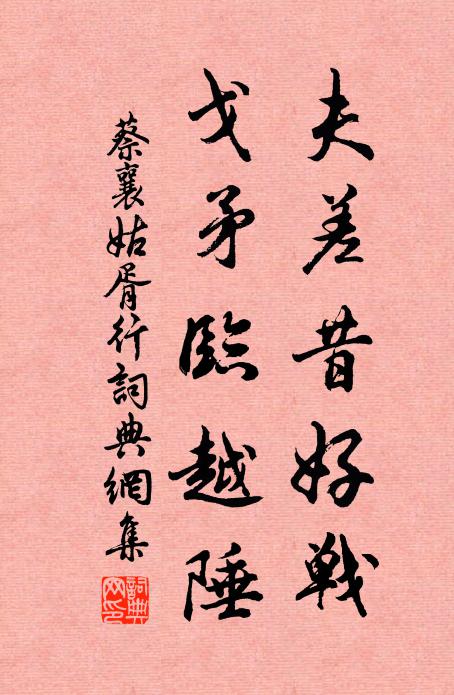 夫差昔好戰
戈矛臨越陲
蔡襄姑胥行詞典網集
詞典網印